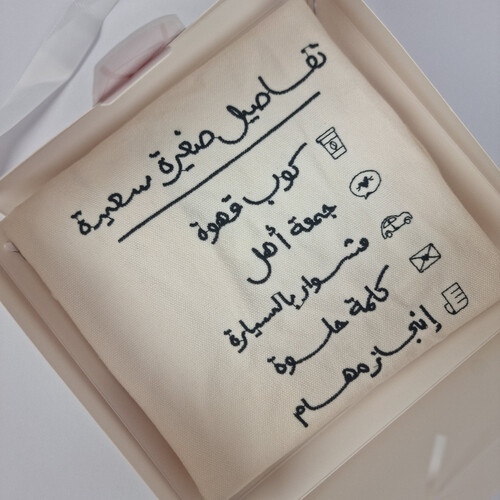 تفاصيل صغيرة سعيدة
كوب قهوة
جمعة أهل
مشوار بالسيارة
كلمة حلوة
إنجاز مهام